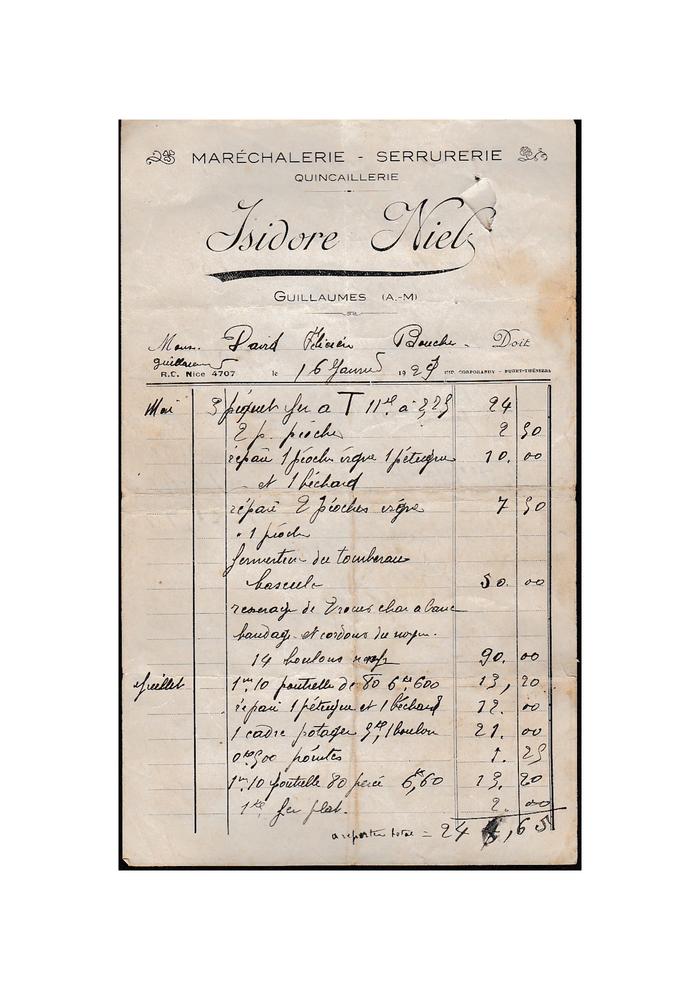 MARÉCHALERIE - SERRURERIE
QUINCAILLERIE
Isidore Niel
GUILLAUMES (A.-M)
Mons. David Félicien Bouche. Doit
guillaumes
R.C. Nice 4707 le 16 Janvier 1929 IMP. CORPORANDY - PUGET-THÉNIERS
Mai 3 piquet fer a T 11 à 24
2 p. pioche 2 50
réparé 1 pioche vigne 1 pétrigue 10. 00
et 1 béchard
réparé 2 pioches vigne 7 50
1 pioche
fermeture du tombereau
bascule 50. 00
reserage de 2 roues char a banc
bandage et cordons du moyeu.
14 boulons neufs 90. 00
Juillet 1m,10 poutrelle de 80 6k,600 13, 20
réparé 1 pétrigue et 1 béchard 12. 00
1 cadre potager 1 boulon 21. 00
0k500 pointes 1. 25
1m,10 poutrelle 80 percé 6k,60 13. 20
1k fer plat. 2. 00
a reporter total = 24 ,65